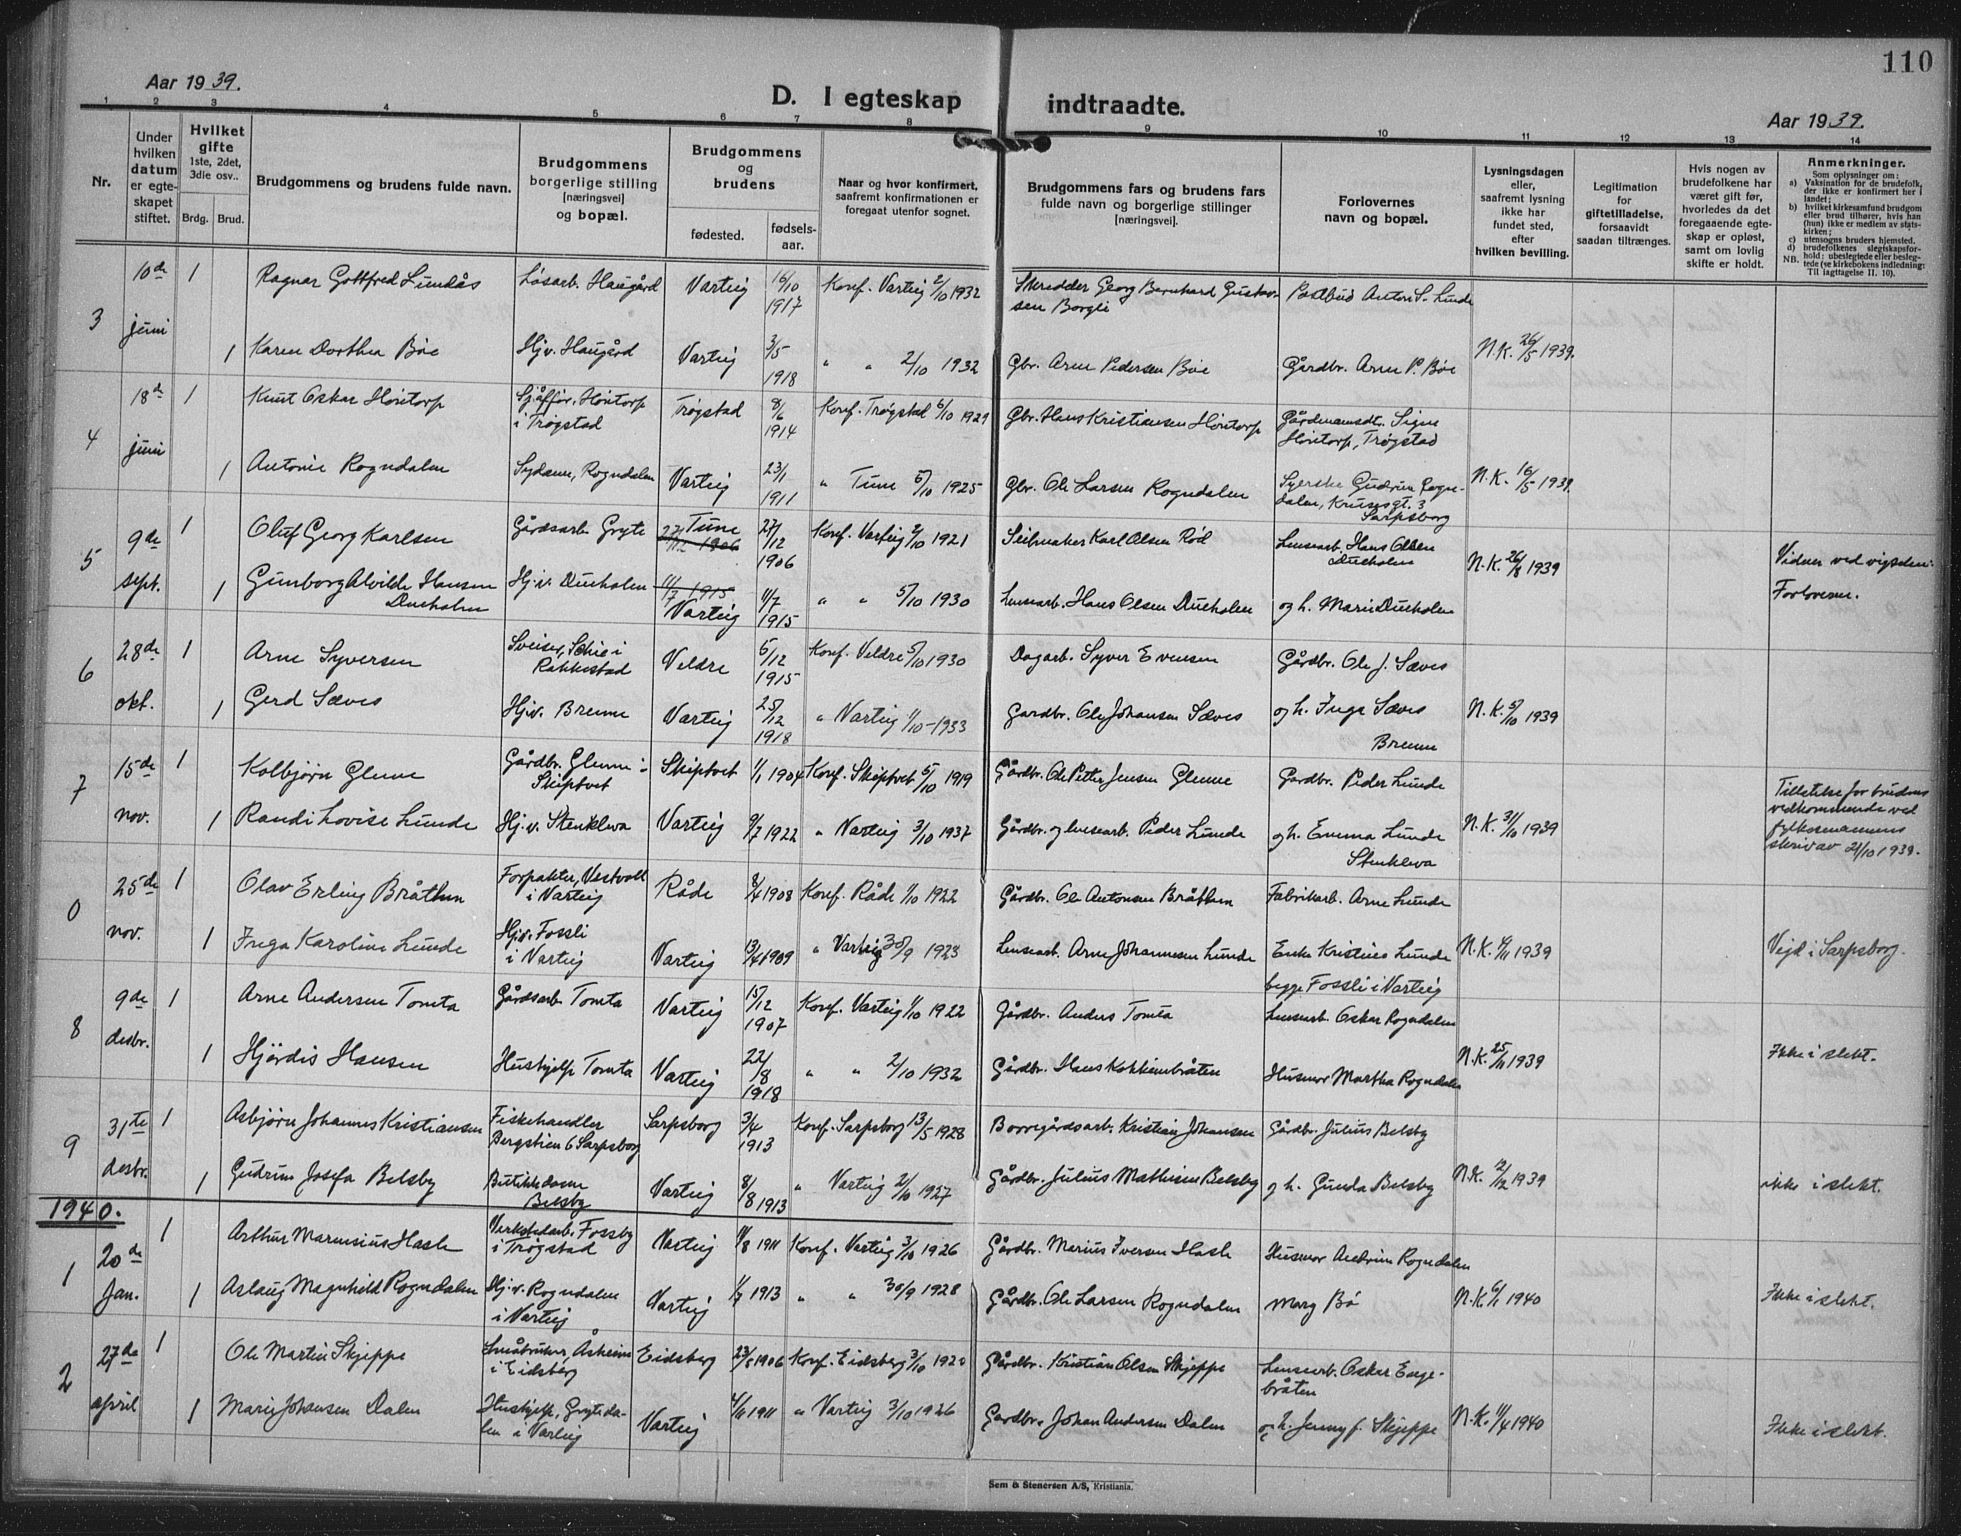 110
Aar 1939.
D. I egteskap indtraadte.
Aar 1939.
1 2 3 4 5 6 7 8 9 10 11 12 13 14
Nr.
Under hvilken datum er egte-skapet stiftet.
Hvilket gifte 1ste, 2det, 3die osv..
Brdg. Brud.
Brudgommens og brudens fulde navn.
Brudgommens borgerlige stilling [næringsvei] og bopæl.
Brudgommens og brudens
fødested. fødsels-aar.
Naar og hvor konfirmert, saafremt konfirmationen er foregaat utenfor sognet.
Brudgommens fars og brudens fars fulde navn og borgerlige stillinger [næringsvei].
Forlovernes navn og bopæl.
Lysningsdagen eller, saafremt lysning ikke har fundet sted, efter hvilken bevilling.
Legitimation for giftetilladelse, forsaavidt saadan tiltrænges.
Hvis nogen av brudefolkene har været gift før, hvorledes da det foregaaende egte-skap er opløst, samt om lovlig skifte er holdt.
Anmerkninger.
Som oplysninger om:
a) Vaksination for de brudefolk, der ikke er konfirmert her i landet;
b) hvilket kirkesamfund brudgom eller brud tilhører, hvis han (hun) ikke er medlem av stats-kirken;
c) utensogns bruders hjemsted.
d) brudefolkenes slegtskapsfor-hold: ubeslegtede eller besleg-tede (se kirkebokens indledning:
NB. Til iagttagelse II. 10).
3 10de juni 1 Ragnar Gottfred Lundås Løsarb. Haugård Varteig 16/10 1917 Konf. Varteig 2/10 1932 Skredder Georg Bernhard Gustav-sen Borgli Postbud Anton S. Lunde
1 Karen Dorthea Bøe Hjv. Haugård Varteig 3/5 1918 " " 2/10 1932 Gbr. Arne Pedersen Bøe Gårdbr. Arne P. Bøe N.K. 26/5 1939.
4 18de juni 1 Knut Oskar Hointorp Sjåfför, Hointorp i Trøgstad Trøgstad 8/6 1914 Konf. Trøgstad 6/10 1929 Gbr. Hans Kristiansen Hointorp Gårdmannsdt. Signe Hointorp, Trøgstad
1 Antonie Rogndalen Sydame, Rogndalen Varteig 23/1 1911 " Tune 5/10 1925 Gbr. Ole Larsen Rogndalen Syerske Gudrun Rogn-dalen, Krussgt. 3 Sarpsborg N.K. 16/5 1939.
5 9de sept. 1 Oluf Georg Karlsen Gårdsarb. Gryte 27/12 1906 Tune 27/12 1906 Konf. Varteig 2/10 1921 Seilmaker Karl Olsen Rød Lensearb. Hans Olsen Dueholen
1 Gunborg Alvilde Hansen Dueholen Hj.v. Dueholen 11/7 1915 Varteig 11/7 1915 " " 5/10 1930 Lensearb. Hans Olsen Dueholen og h. Marie Dueholen N.K. 26/8 1939 Vidner ved vigselen: Forloverne.
6 28de okt. 1 Arne Syversen Sveiser, Schie i Rakkestad Veldre 5/12 1915 Konf. Veldre 5/10 1930 Dagarb. Syver Evensen Gårdbr. Ole J. Sæves
1 Gerd Sæves Hjv. Brenne Varteig 25/12 1918 " Varteig 1/10-1933 Gardbr. Ole Johansen Sæves og h. Inga Sæves Brenne N.K. 5/10 1939
7 15de nov. 1 Kolbjørn Glenne Gårdbr. Glenne i Skiptvet Skiptvet 1/1 1904 Konf. Skiptvet 5/10 1919 Gårdbr. Ole Petter Jensen Glenne Gardbr. Peder Lunde
1 Randi Lovise Lunde Hj.v. Stenkleva Varteig 9/7 1922 " Varteig 3/10 1937 Gårdbr. og lensearb. Peder Lunde og h. Emma Lunde Stenkleva N.K. 31/10 1939 Tillatelse for brudens vedkommende ved fylkesmannens skriv av 21/10 1939.
0 25de nov. 1 Olav Erling Bråthen Forpakter, Vestvoll i Varteig Råde 8/4 1908 Konf. Råde 1/10 1922 Gårdbr. Ole Antonsen Bråthen Fabrikarb. Arne Lunde
1 Inga Karoline Lunde Hjv. Fossli i Varteig Varteig 13/4 1909 " Varteig 30/9 1923 Lensearb. Arne Johannesen Lunde Enke Kristine Lunde begge Fossli i Varteig N.K. 4/11 1939 Vigd i Sarpsborg.
8 9de desbr. 1 Arne Andersen Tomta Gårdsarb. Tomta Varteig 15/12 1907 Konf. Varteig 1/10 1922 Gårdbr. Anders Tomta Lensearb. Oskar Rogndalen
1 Hjördis Hansen Hushjelp Tomta Varteig 22/8 1918 " " 2/10 1932 Gårdbr. Hans Kokkimbråten Husmor Martha Rogndalen N.K. 25/11 1939 Ikke i slekt.
9 31te desbr. 1 Asbjørn Johannes Kristiansen Fiskehandler Bergstien 6 Sarpsborg Sarpsborg 3/4 1913 Konf. Sarpsborg 13/5 1928 Borregårdsarb. Kristian Johansen Gårdbr. Julius Belsby
1 Gudrun Josefa Belsby Butikkdame Belsby Varteig 8/8 1913 " Varteig 2/10 1927 Gårdbr. Julius Mathisen Belsby og h. Gunda Belsby N.K. 12/12 1939 ikke i slekt.
1940.
1 20de Jan. 1 Arthur Marensius Hasle Verkstedarb. Fossby i Trøgstad Varteig 11/8 1911 Konf. Varteig 3/10 1926 Gårdbr. Marius Iversen Hasle Husmor Andrine Rogndalen
1 Aslaug Magnhild Rogndalen Hj.v. Rogndalen i Varteig Varteig 1/7 1913 " " 30/9 1928 Gårdbr. Ole Larsen Rogndalen Marg Bö N.K. 6/1 1940 Ikke i slekt.
2 27de april 1 Ole Martin Skjeppe Småbruker, Åsheim i Eidsberg Eidsberg 23/5 1906 Konf. Eidsberg 3/10 1920 Gårdbr. Kristian Olsen Skjeppe Lensearb. Oskar Enge-bråten
1 Marie Johansen Dalen Hushjelp, Gryteda-len i Varteig Varteig 4/11 1911 " Varteig 3/10 1926 Gardbr. Johan Andersen Dalen og h. Jenny f. Skjeppe N.K. 11/4 1940 Ikke i slekt.
Sem & Stenersen A/S, Kristiania.